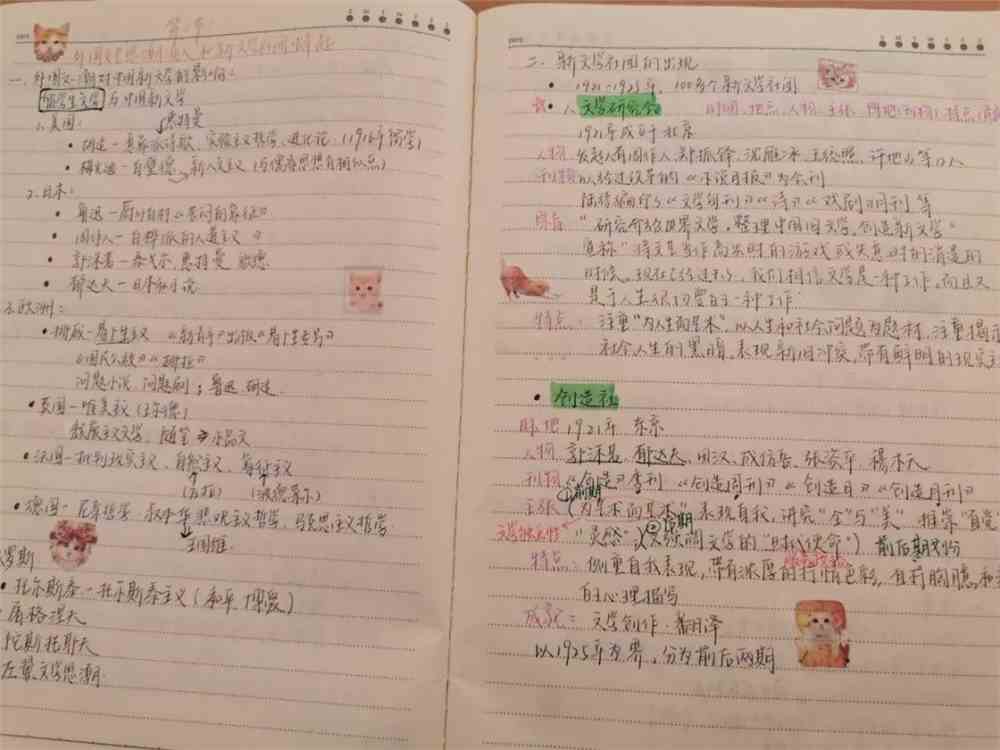 第二节
外国文艺思潮涌入和新文学社团蜂起
一、外国文潮对中国新文学的影响:
留学生文学 与中国新文学
1.美国: 惠特曼
• 胡适—意象派诗歌、实验主义哲学、进化论 (1916年留学)
• 梅光迪—白璧德 新人文主义 (与儒家思想有相似点)
2.日本:
• 鲁迅—厨川白村《苦闷的象征》
• 周作人—白桦派的人道主义
• 郭沫若—泰戈尔 惠特曼 歌德
• 郁达夫—日本私小说
3.欧洲:
• 挪威—易卜生主义 《新青年》出版《易卜生专号》
《国民公敌》《娜拉》
问题小说、问题剧; 鲁迅 胡适
• 英国—唯美主义 (王尔德)
主义文学, 随笔 ⇒ 小品文
• 法国—批判现实主义、自然主义、象征主义
(左拉) (波德莱尔)
• 德国—尼采哲学、叔本华悲观主义哲学、马克思主义哲学
王国维
罗斯
• 托尔斯泰—托尔斯泰主义 (和平 博爱)
• 屠格涅夫
陀斯托斯夫
左翼文学思潮
二、新文学社团的出现
• 1921—1925年, 100多个新文学社团
• 1. 文学研究会 时间、地点、人物、主张、阵地(刊物)、特点
1921年成立于北京
人物 发起人有周作人、郑振铎、沈雁冰、王统照、许地山等12人
刊物 以经过改革的《小说月报》为会刊
陆续编印了《文学旬刊》《诗》《戏剧》月刊等
宗旨 "研究介绍世界文学, 整理中国旧文学, 创造新文学"
宣称 "将文艺当作高兴时的游戏或失意时的消遣的
时候, 现在已经过去了, 我们相信文学是一种工作, 而且又
是于人生很切要的一种工作"
特点: 注重"为人生而艺术", 以人生和社会问题为题材, 注重揭示
社会人生的黑暗, 表现新旧冲突, 带有鲜明的现实主
• 创造社
时、地 1921年 东京
人物 郭沫若、郁达夫、田汉、成仿吾、张资平、穆木天
刊物 《创造》季刊 《创造周刊》 《创造日》《创造月刊》
前期
主张 (为艺术而艺术" 表现自我, 讲究"全"与"美" 推崇"直觉
文学独立性 "灵感", (又强调文学的"时代使命") 前后期
②后期
特点: 侧重自我表现, 带有浓厚的抒情色彩, 直抒胸臆和
自主心理描写
成就: 文学创作、翻译
以1925年为界, 分为前后两期